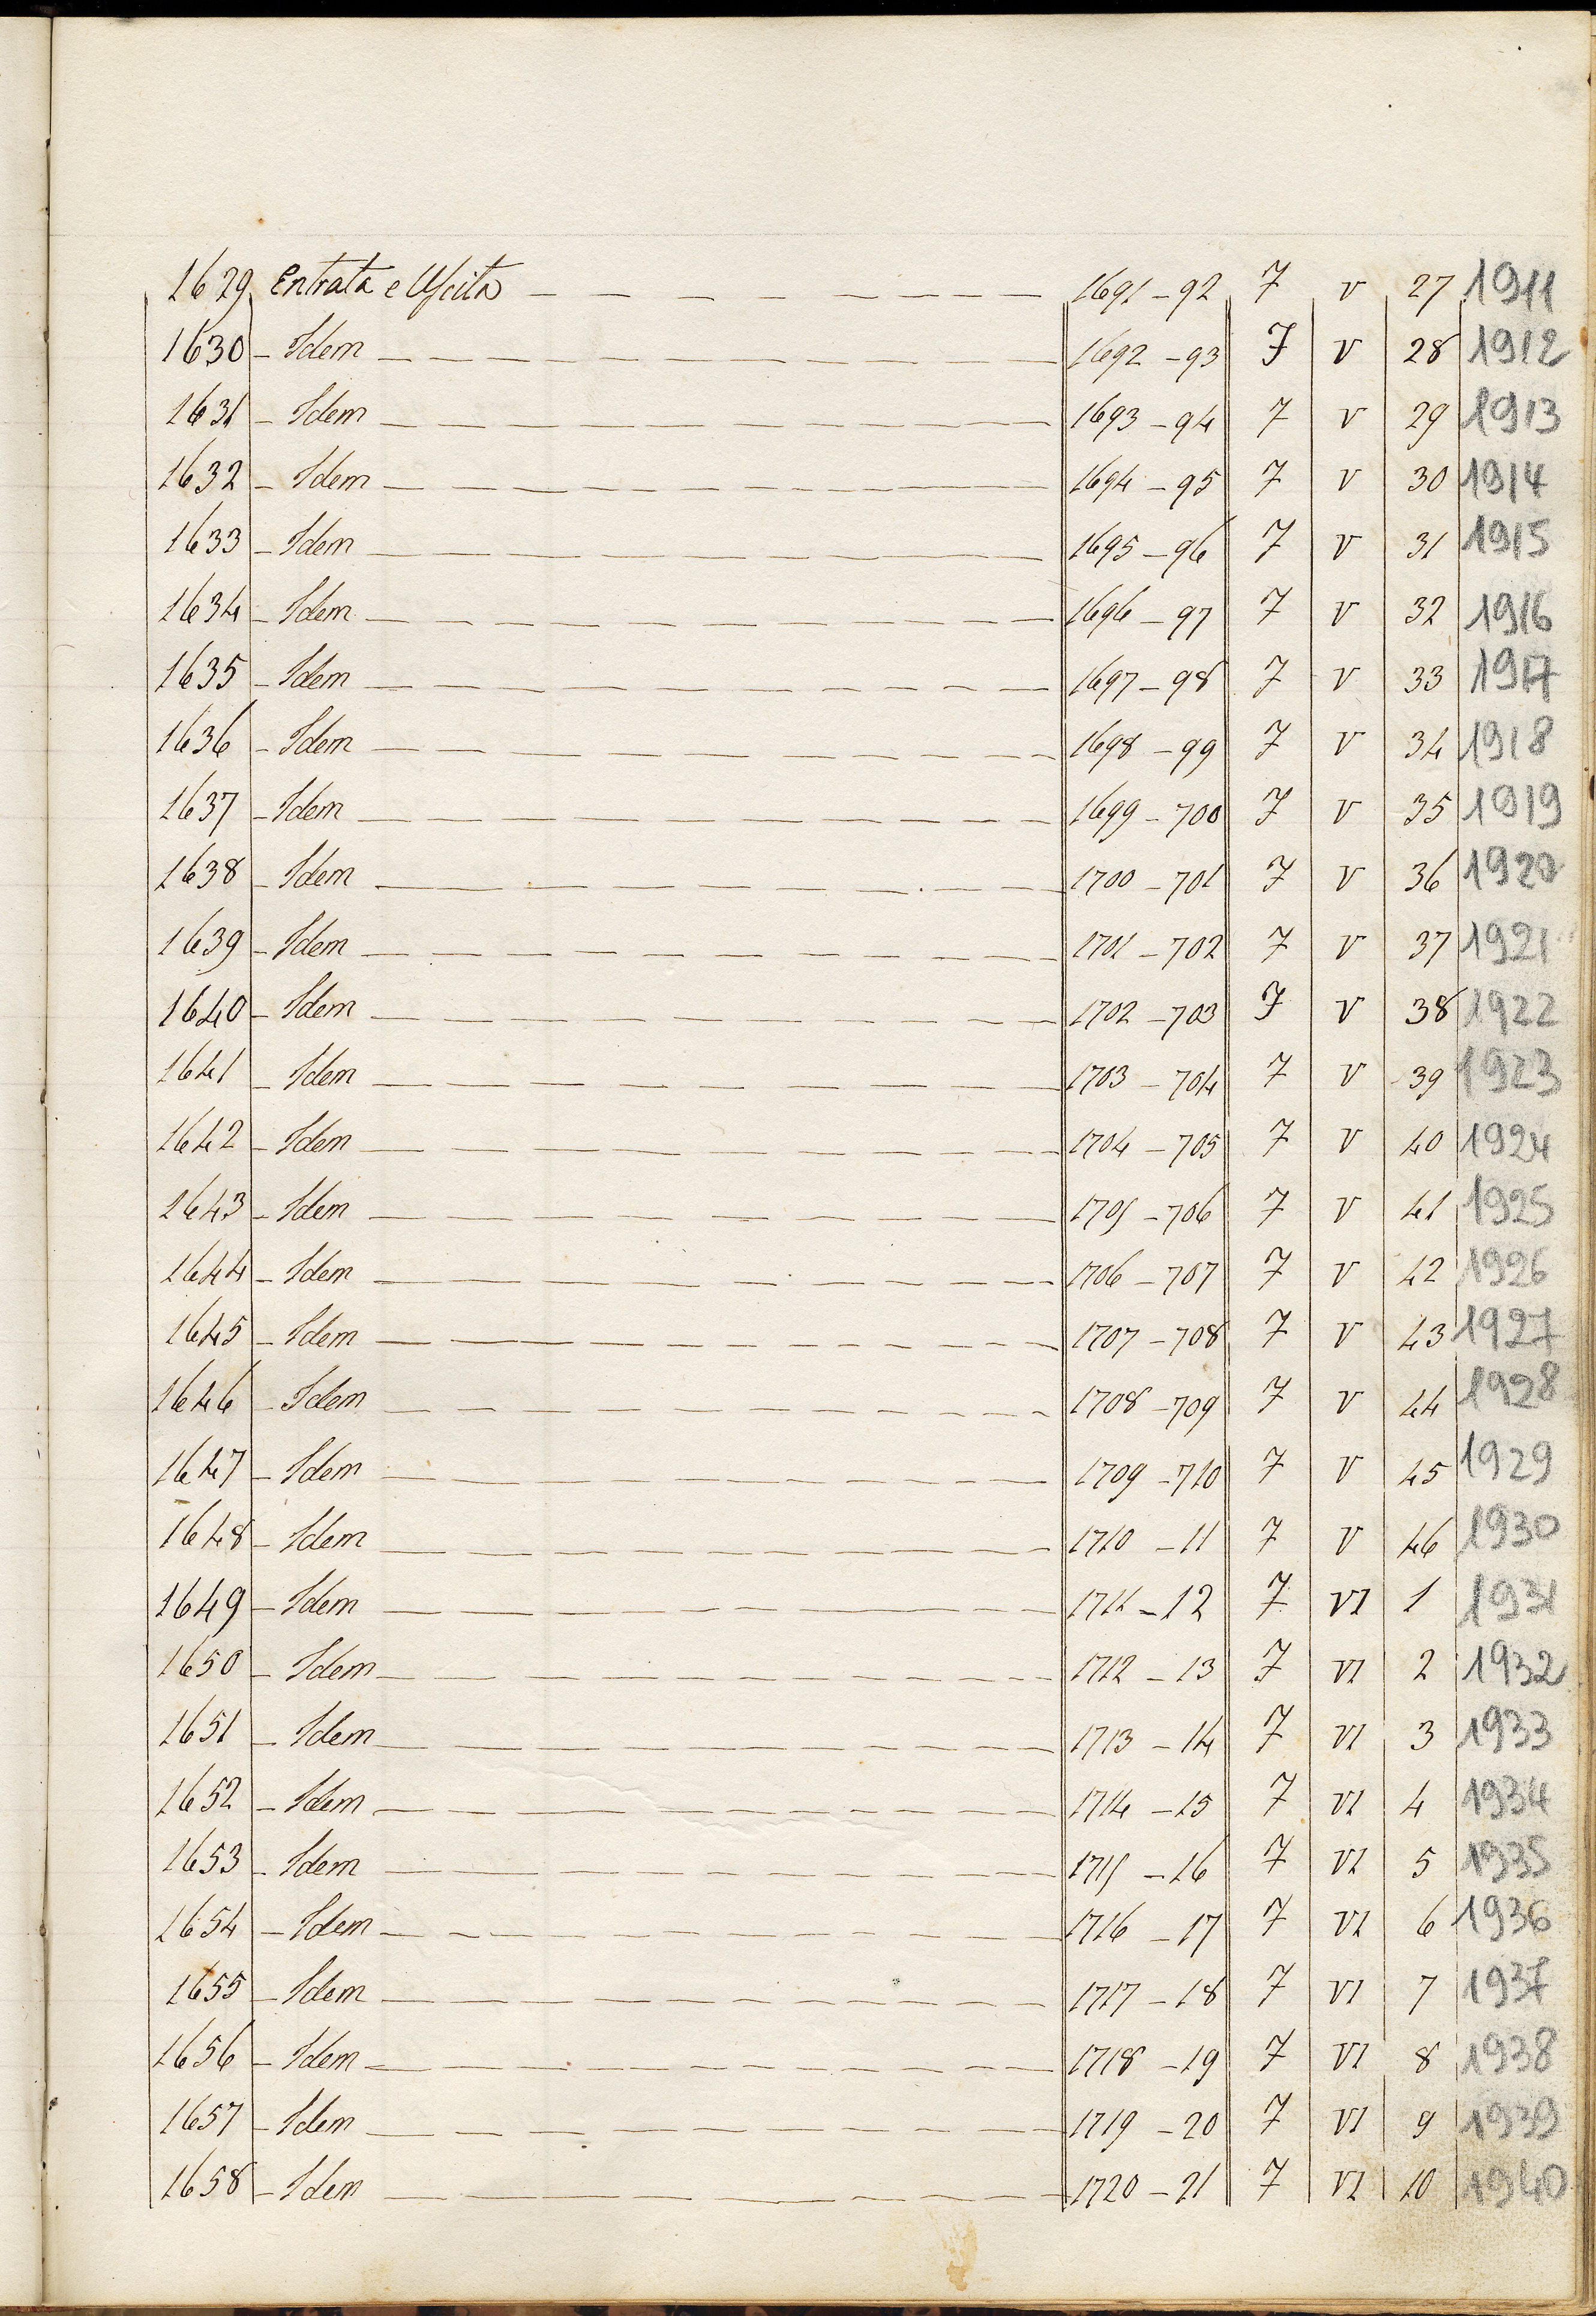 1629 Entrata e Uscita 1691-92 7 V 27 1911
1630 - Idem 1692-93 7 V 28 1912
1631 - Idem 1693-94 7 V 29 1913
1632 - Idem 1694-95 7 V 30 1914
1633 - Idem 1695-96 7 V 31 1915
1634 - Idem 1696-97 7 V 32 1916
1635 - Idem 1697-98 7 V 33 1917
1636 - Idem 1698-99 7 V 34 1918
1637 - Idem 1699-700 7 V 35 1919
1638 - Idem 1700-701 7 V 36 1920
1639 - Idem 1701-702 7 V 37 1921
1640 - Idem 1702-703 7 V 38 1922
1641 - Idem 1703-704 7 V 39 1923
1642 - Idem 1704-705 7 V 40 1924
1643 - Idem 1705-706 7 V 41 1925
1644 - Idem 1706-707 7 V 42 1926
1645 - Idem 1707-708 7 V 43 1927
1646 - Idem 1708-709 7 V 44 1928
1647 - Idem 1709-710 7 V 45 1929
1648 - Idem 1710-11 7 V 46 1930
1649 - Idem 1711-12 7 VI 1 1931
1650 - Idem 1712-13 7 VI 2 1932
1651 - Idem 1713-14 7 VI 3 1933
1652 - Idem 1714-15 7 VI 4 1934
1653 - Idem 1715-16 7 VI 5 1935
1654 - Idem 1716-17 7 VI 6 1936
1655 - Idem 1717-18 7 VI 7 1937
1656 - Idem 1718-19 7 VI 8 1938
1657 - Idem 1719-20 7 VI 9 1939
1658 - Idem 1720-21 7 VI 10 1940